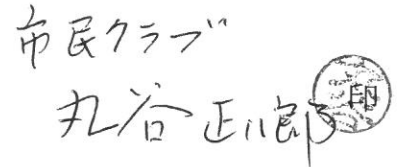 市民クラブ
丸谷正八郎 印